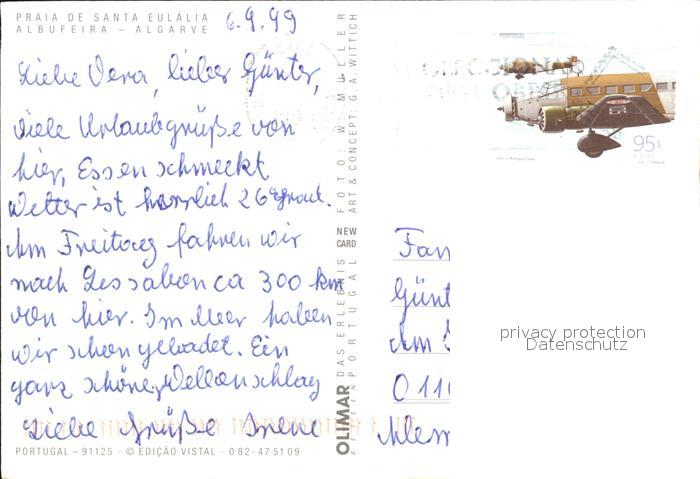 PRAIA DE SANTA EULÁLIA
ALBUFEIRA – ALGARVE
6.9.99
Liebe Vera, lieber Günter,
viele Urlaubsgrüße von
hier, Essen schmeckt
Wetter ist herrlich 26 grad.
Am Freitag fahren wir
nach Lissabon ca 300 km
von hier. Im Meer haben
wir schon gebadet. Ein
ganz schöner Wellenschlag
Liebe Grüße Irene
PORTUGAL – 91125 · © EDIÇÃO VISTAL · 082-475109
FOTO: W. MULLER
ART & CONCEPT: G.A. WITTICH
NEW CARD
OLIMAR DAS ERLEBNIS
REISEN PORTUGAL
PORTUGAL
95$
Fam
Günt
Am
011
privacy protection
Datenschutz